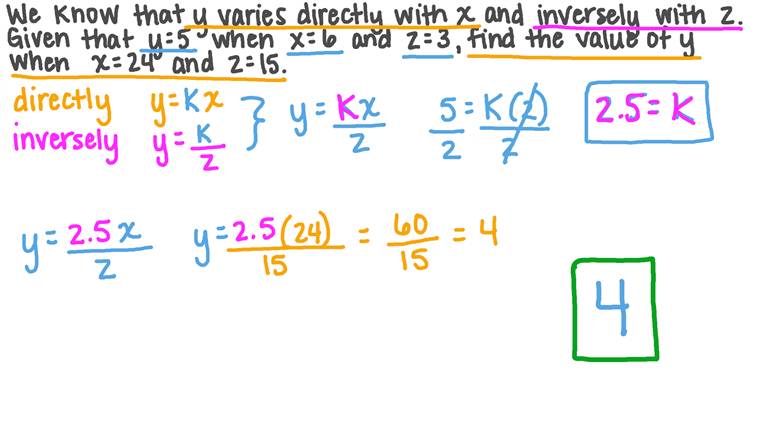 We know that y varies directly with x and inversely with z.
Given that y=5 when x=6 and z=3, find the value of y
when x=24 and z=15.
directly y=Kx } y=Kx/z 5/2=K(2)/2 2.5=K
inversely y=K/z
y=2.5x/z y=2.5(24)/15 = 60/15 = 4
4